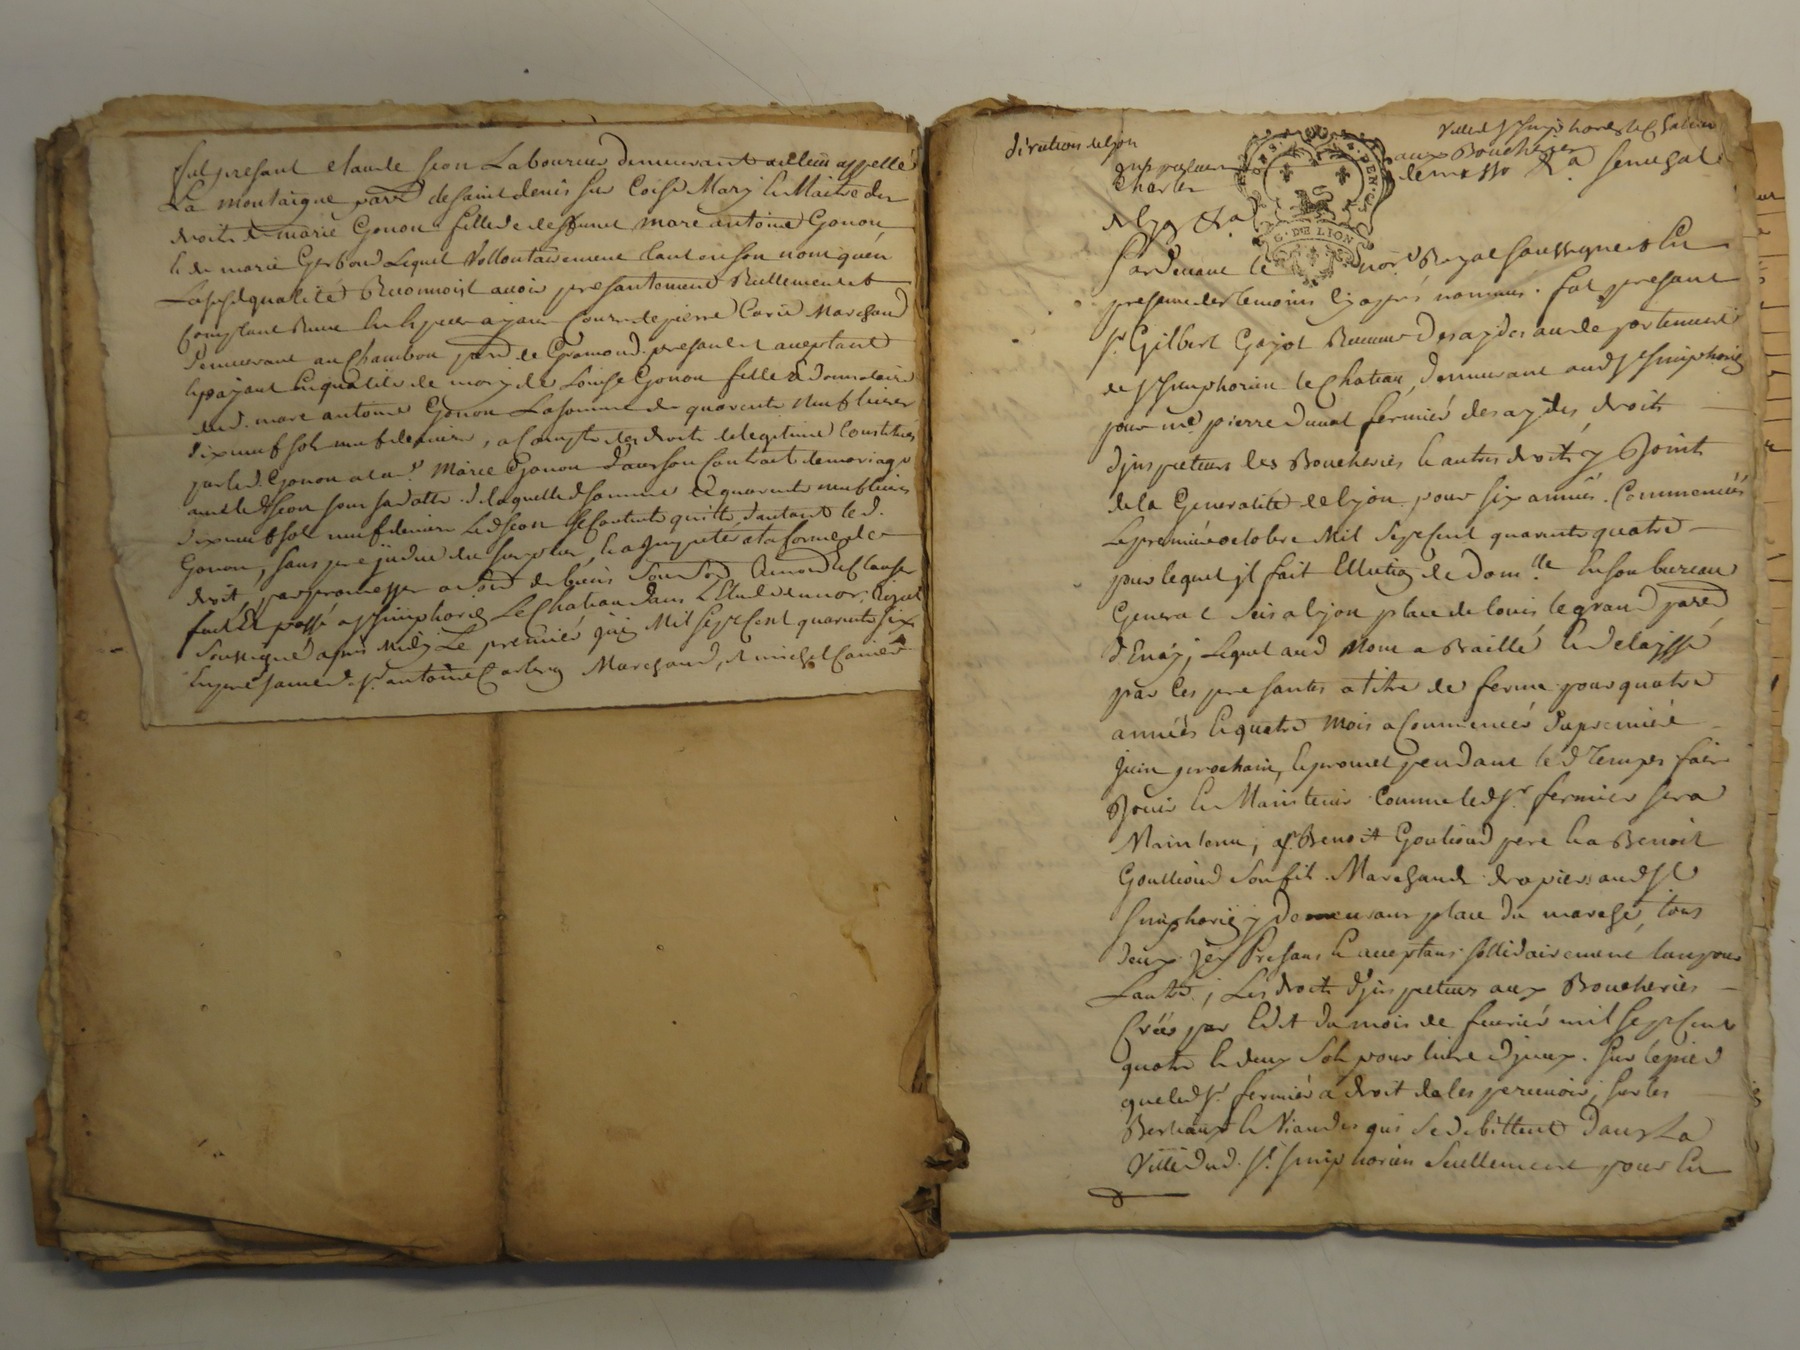 fut presant Claude Seon Laboureur demeurant au lieu appellé
La montaigne parr. de saint denis sur Coise Mary et Maitre des
droits de marie Gonon fille de deffunt marc antoine Gonon
et de marie Gerboud Lequel Vollontairement tant en son nom quen
Lad. qualité Reconnoist avoir presantement Reellement et
Comptant Receu de pierre Carié Marchand
demeurant au Chambon parr. de Gramond presant et acceptant
et payant en qualité de mary de Louise Gonon fille et donnataire
dud. marc antoine Gonon La somme de quarente neuf livres
dix neuf sols neuf deniers, a Compte des droits de legitime Constitués
par led. Gonon a lad. Marie Gonon dans son Contract de mariage
avec led. Seon sous sa datte. de laquelle d. somme de quarente neuf livres
dix neuf sols neuf deniers Led. Seon se Contente quitte d'autant led.
Gonon, sans prejudice du surplus, a la forme de
droit, par promesses
fait et passé a St simphorien Le Chateau dans L'Etude du nor. Royal
soussigné apres midy Le premier juin Mil sept Cent quarente six
En presance de sr. antoine Marchand, et michel
direction de Lyon
Ville de St simphorien le Chateau
aux Boucheries
Pardevant le nore. Royal soussigné et En
presence des temoins cy aprés nommés. fut presant
sr. Gilbert Gayot Receveur des aydes au de partement
de St simphorien le Chateau, demeurant aud. St simphorien
pour me. pierre duval fermier des aydes, droits
d'jnspecteurs des Boucheries et autres droits y Joints
de la Generalité de lyon pour six années. Commencées
Le premier octobre Mil Sept Cent quarente quatre
pour lequel jl fait Election de dom.lle En son bureau
General Sis a lyon place de Louis le grand parr.
d'Enay, Lequel aud. Nom a Baillé et delayssé
par ces presantes a titre de ferme pour quatre
années et quatre Mois a Commencer du premier
Juin prochain, et promet pendant led. Temps faire
Jouir et Maintenir Comme led. sr. fermier sera
Maintenu; a sr. Benoit Goutioud pere et a Benoit
Goutioud Son fils Marchands drapiers aud. St
simphorien y demeurans place du marché, tous
deux jcy Presans et acceptans sollidairement lun pour
Lautre; Les droits d'jnspecteurs aux Boucheries
Créés par Edit du mois de fevrier mil sept Cent
quatre et deux Sols pour livre d'jceux. sur le pied
que led. sr. fermier a droit de les percevoir, sur les
Bestiaux et Viandes qui se debittent dans La
Ville dud. St. simphorien Seullement pour En
G. DE LION